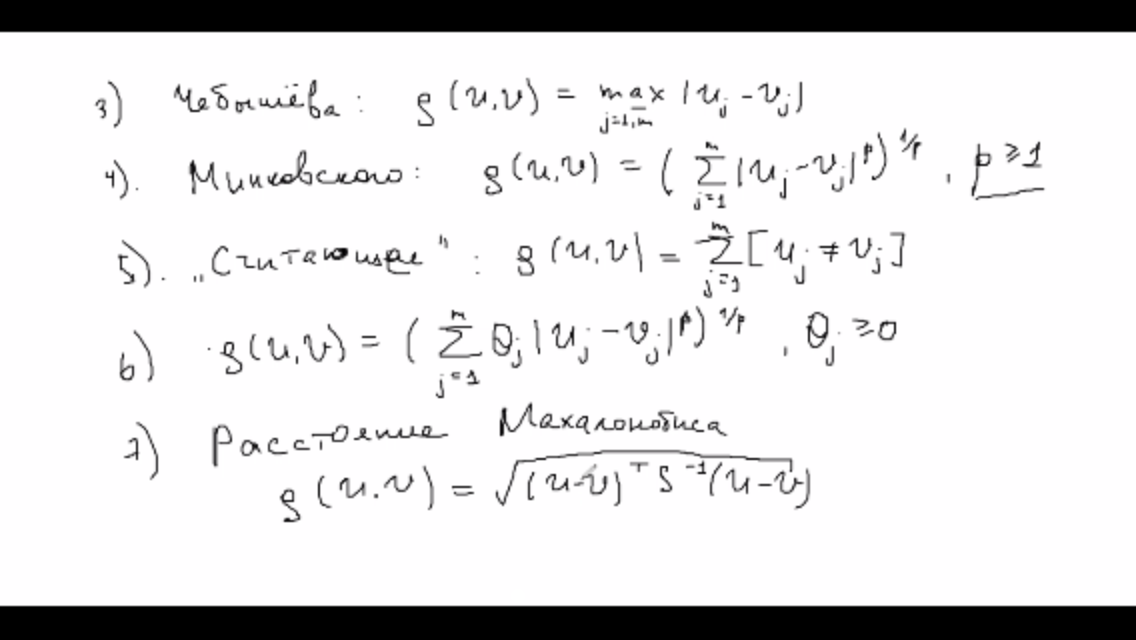 3) Чебышёва: ρ(u,v) = max_{j=1,m} |u_j - v_j|
4). Минковского: ρ(u,v) = (∑_{j=1}^{m} |u_j - v_j|^p)^{1/p}, p ≥ 1
5). „Считающее": ρ(u,v) = ∑_{j=1}^{m} [u_j ≠ v_j]
6) ρ(u,v) = (∑_{j=1}^{m} θ_j |u_j - v_j|^p)^{1/p}, θ_j ≥ 0
7) Расстояние Махалонобиса
ρ(u,v) = √((u-v)^T S^{-1} (u-v))